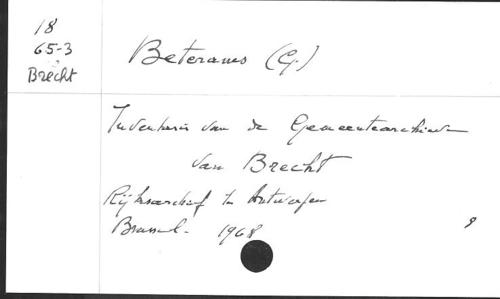 18
65-3
Brecht
Beterams (G.)
Inventaris van de Gemeentearchieven
van Brecht
Rijksarchief te Antwerpen
Brussel - 1968